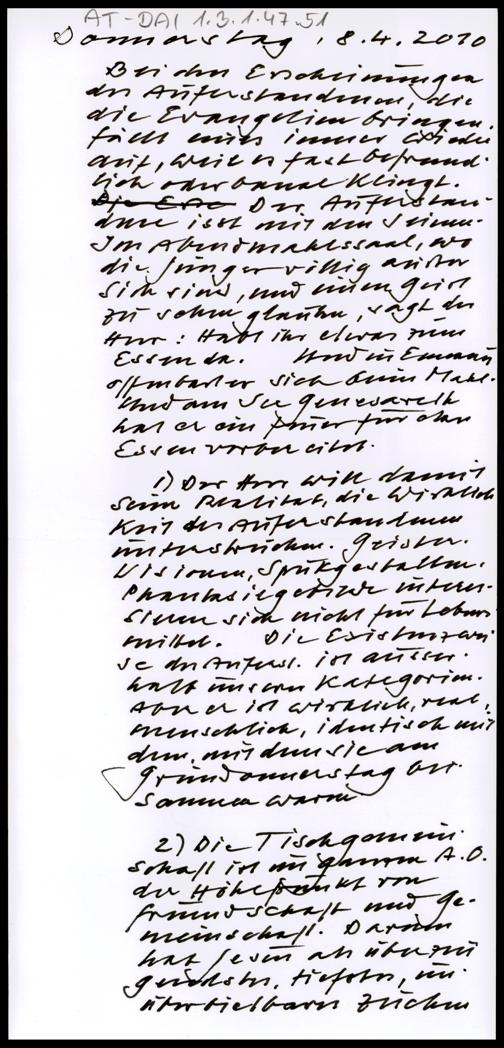 AT-DAI 1.3.1.47.51
Donnerstag, 8.4.2010
Bei den Erscheinungen
des Auferstandenen, die
die Evangelien bringen,
fällt mir immer wieder
auf, weil es fast befremd-
lich oder banal klingt.
Die Erse Der Auferstan-
dene isst mit den Seinen.
Im Abendmahlssaal, wo
die Jünger völlig ausser
sich sind, und einen Geist
zu sehen glauben, sagt der
Herr: Habt ihr etwas zum
Essen da. Und in Emmaus
offenbart er sich beim Mahl.
Und am See Genesareth
hat er ein Feuer für das
Essen vorbereitet.
1) Der Herr will damit
seine Realität, die Wirklich
keit des Auferstandenen
unterstreichen. Geister.
Visionen, Spukgestalten.
Phantasiegebilde interes-
sieren sich nicht für Lebens
mittel. Die Existenzwei
se des Auferst. ist ausser-
halb unserer Kategorien.
Aber er ist wirklich, real,
menschlich, identisch mit
dem, mit dem sie am
Gründonnerstag bei-
sammen waren
2) Die Tischgemein
schaft ist im ganzen A.O.
der Höhepunkt von
Freundschaft und Ge-
meinschaft. Darum
hat Jesus als überzeu
gendstes, tiefstes, un-
überbietbares Zeichen